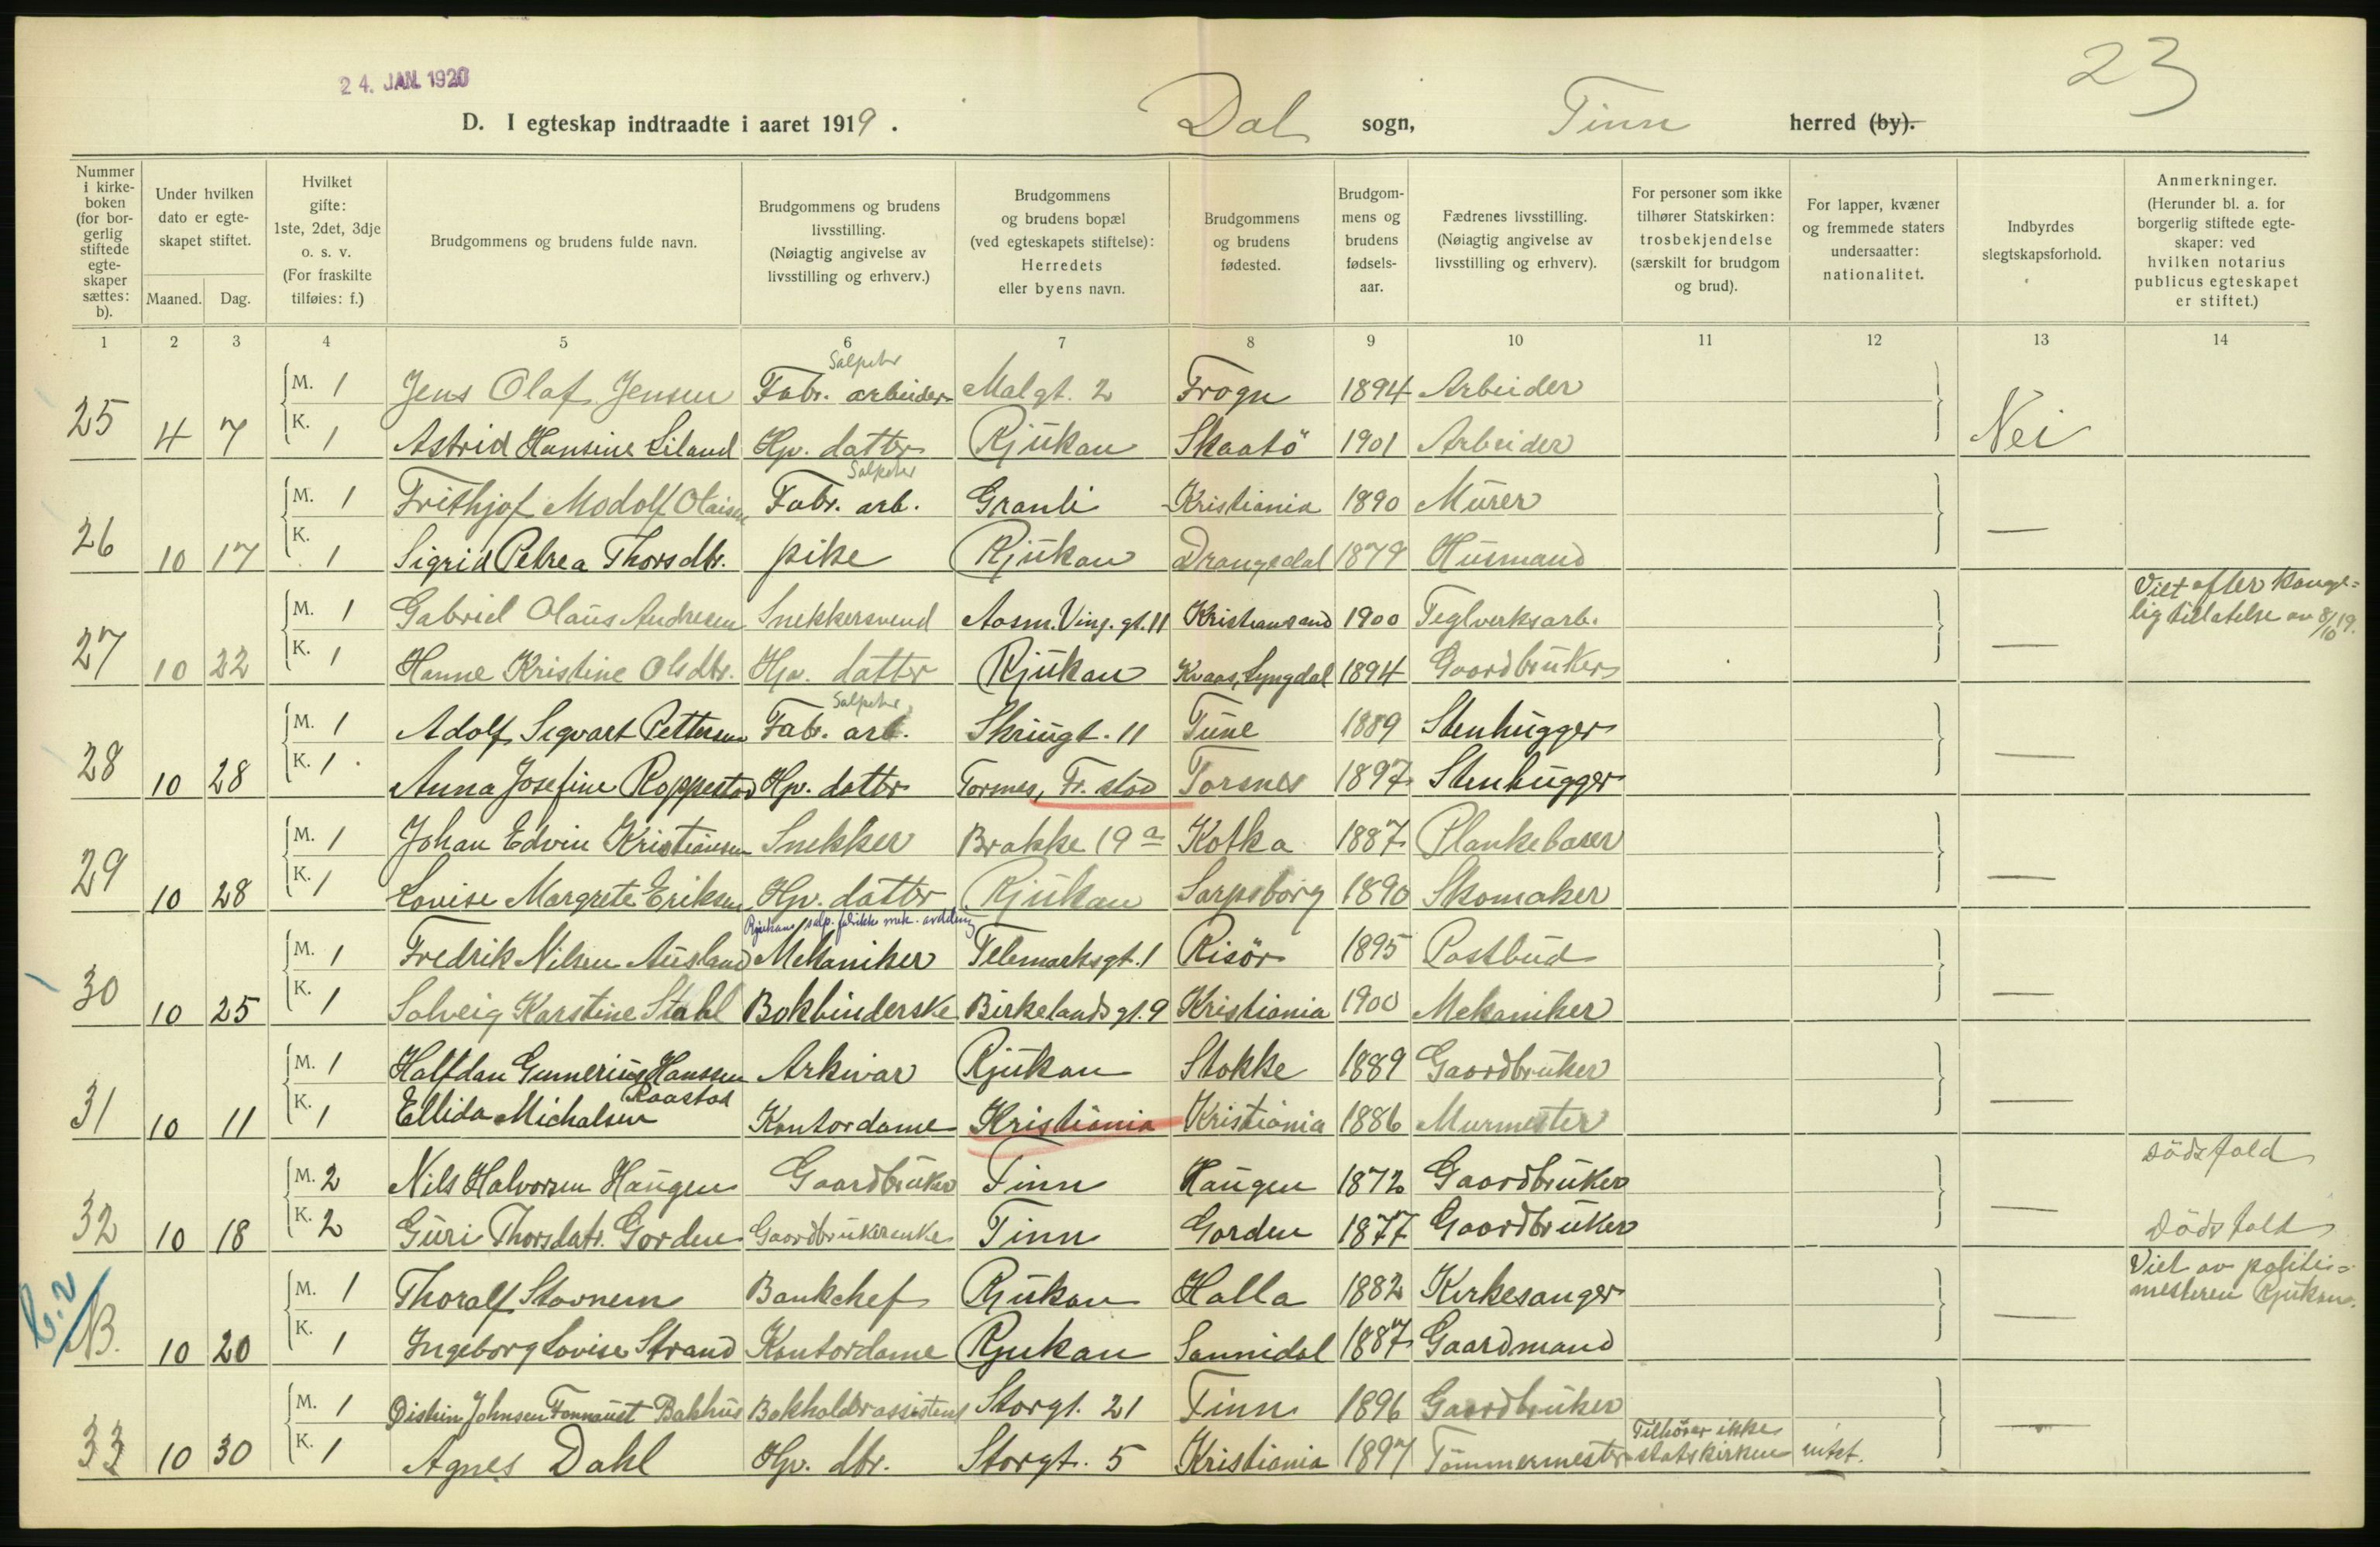 24. JAN. 1920
23
D. I egteskap indtraadte i aaret 1919. Dal sogn, Tinn herred (by).
Nummer i kirkeboken (for borgerlig stiftede egteskaper sættes: b).
Under hvilken dato er egteskapet stiftet.
Maaned. Dag.
Hvilket gifte: 1ste, 2det, 3dje o. s. v. (For fraskilte tilføies: f.)
Brudgommens og brudens fulde navn.
Brudgommens og brudens livsstilling. (Nøiagtig angivelse av livsstilling og erhverv.)
Brudgommens og brudens bopæl (ved egteskapets stiftelse): Herredets eller byens navn.
Brudgommens og brudens fødested.
Brudgommens og brudens fødselsaar.
Fædrenes livsstilling. (Nøiagtig angivelse av livsstilling og erhverv).
For personer som ikke tilhører Statskirken: trosbekjendelse (særskilt for brudgom og brud).
For lapper, kvæner og fremmede staters undersaatter: nationalitet.
Indbyrdes slegtskapsforhold.
Anmerkninger. (Herunder bl. a. for borgerlig stiftede egteskaper: ved hvilken notarius publicus egteskapet er stiftet.)
1 2 3 4 5 6 7 8 9 10 11 12 13 14
Salpeter
M. 1 Jens Olaf Jensen Fabr. arbeider Malgt. 2 Frogn 1894 Arbeider
25 4 7 K. 1 Astrid Hansine Liland Hv. datter Rjukan Skaatö 1901 Arbeider Nei
Salpeter
M. 1 Frithjof Modolf Olaisen Fabr. arb. Granli Kristiania 1890 Murer
26 10 17 K. 1 Sigrid Petrea Thorsdtr. pike Rjukan Drangedal 1879 Husmand —
M. 1 Gabriel Olaus Andresen Snekkersvend Aasm. Vinj. gt. 11 Kristiansand 1900 Teglverksarb. Viet efter kongelig tillatelse av 8/10 19.
27 10 22 K. 1 Hanne Kristine Olsdtr. Hv. datter Rjukan Kvaas, Lyngdal 1894 Gaardbruker —
Salpeter
M. 1 Adolf Sigvart Pettersen Fabr. arb. Skriugt. 11 Tune 1889 Stenhugger
28 10 28 K. 1 Anna Josefine Roppestad Hv. datter Torsnes, Fr. stad Torsnes 1897 Stenhugger —
M. 1 Johan Edvin Kristiansen Snekker Brakke 19 a Kotka 1887 Plankebærer
29 10 28 K. 1 Lovise Margrete Eriksen Hv. datter Rjukan Sarpsborg 1890 Skomaker —
Rjukans salp. fabrikks mek. avdeling
M. 1 Fredrik Nilsen Ausland Mekaniker Telemarksgt. 1 Risör 1895 Postbud
30 10 25 K. 1 Solveig Karstine Stahl Bokbinderske Birkelands gt. 9 Kristiania 1900 Mekaniker —
M. 1 Halfdan Gunnerius Hanssen Raastad Arkivar Rjukan Stokke 1889 Gaardbruker
31 10 11 K. 1 Ellida Michalsen Kontordame Kristiania Kristiania 1886 Murmester —
M. 2 Nils Halvorsen Haugen Gaardbruker Tinn Haugen 1872 Gaardbruker Dödsfald
32 10 18 K. 2 Guri Thorsdatr. Gorden Gaardbrukerenke Tinn Gorden 1877 Gaardbruker — Dödsfald
M. 1 Thoralf Stavnem Bankchef Rjukan Halla 1882 Kirkesanger Viet av politimesteren Rjukan.
B. 10 20 K. 1 Ingeborg Lovise Strand Kontordame Rjukan Sannidal 1887 Gaardmand —
M. 1 Øistein Johnsen Fonnaust Bakhus Bokholderassistent Storgt. 21 Tinn 1896 Gaardbruker
33 10 30 K. 1 Agnes Dahl Hv. dtr. Storgt. 5 Kristiania 1897 Tömmermester Tilhører ikke statskirken intet. —